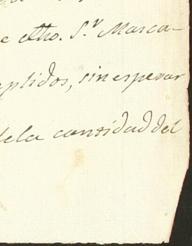 e dho. S.r Marca-
plidos, sin esperar
dela cantidad del